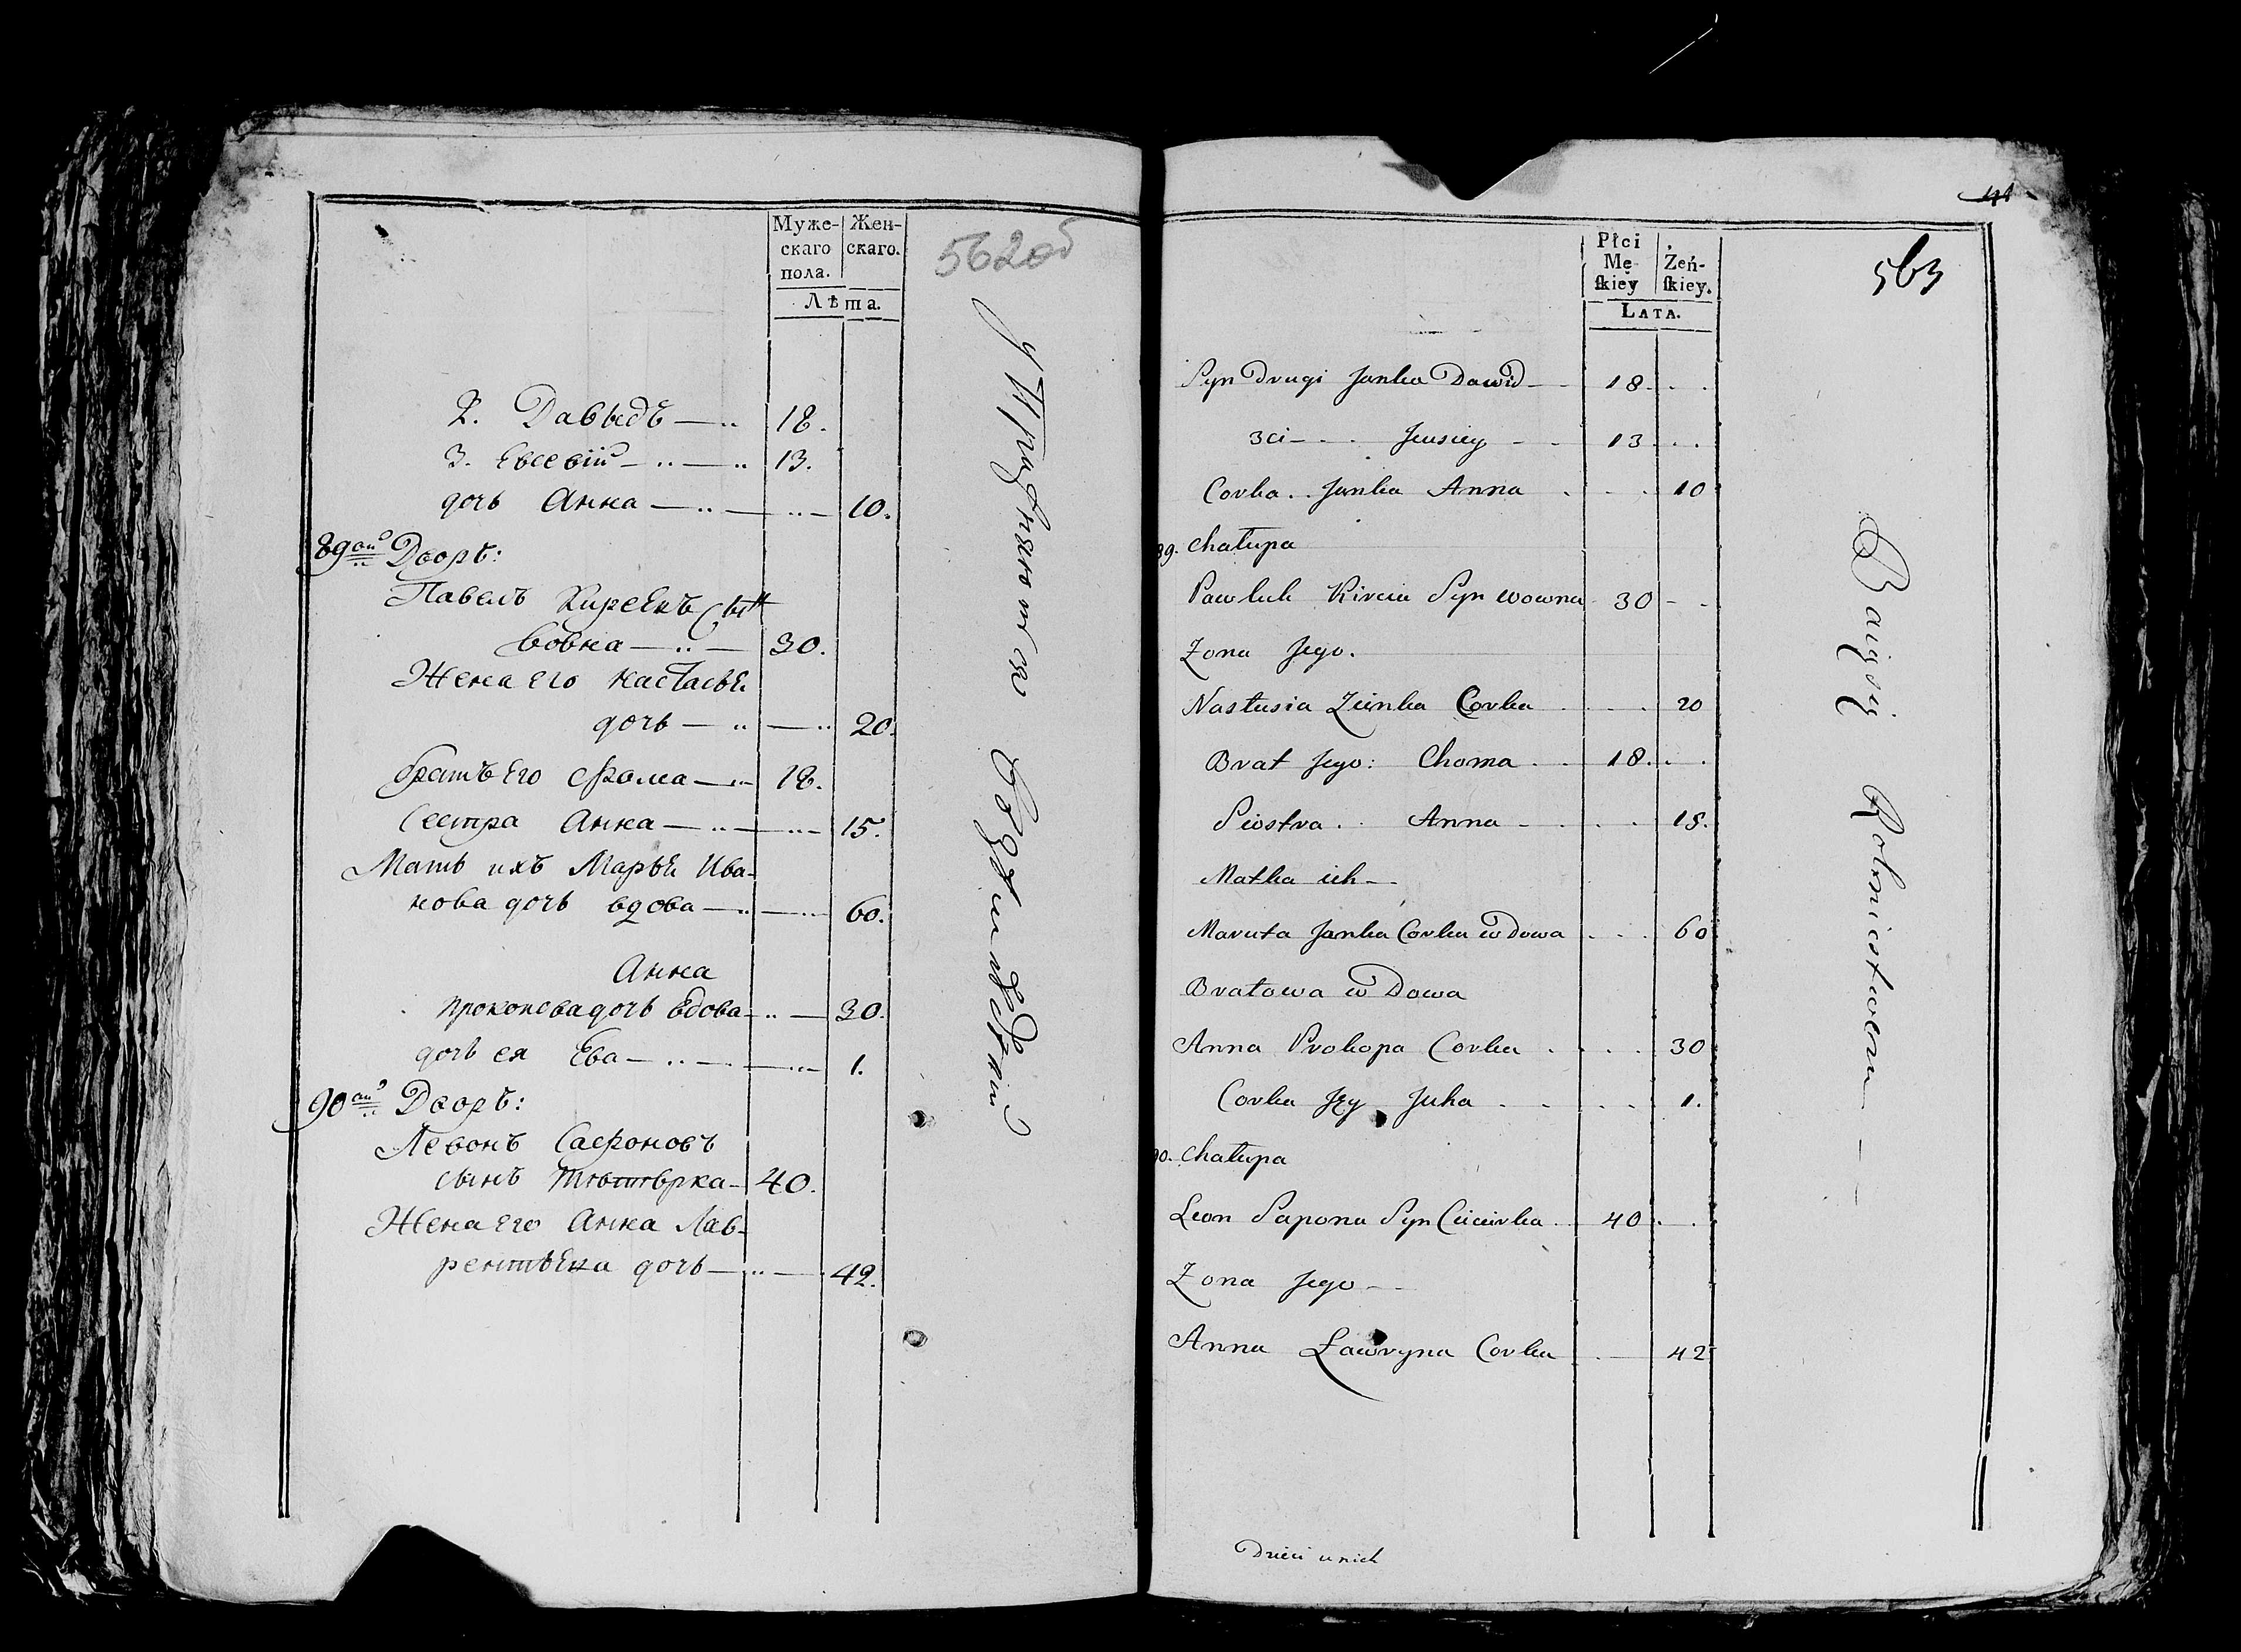 Муже-
скаго
пола.
Жен-
скаго.
Лѣта.
562об
2. Давыдъ 18.
3. Евсевій 13.
дочь Анна 10.
89ой Дворъ:
Павелъ Киреевъ сынъ
Вовна 30.
Жена его Настасья
дочь 20.
братъ его Фома 18.
Сестра Анна 15.
Мать ихъ Марья Ива-
нова дочь вдова 60.
Анна
Прокопова дочь вдова 30.
дочь ея Ева 1.
90ой Дворъ:
Левонъ Сафоновъ
сынъ 40.
Жена его Анна Лав-
рентьева дочь 42.
Упражняются
Płci
Mę-
ſkiey
Żeń-
ſkiey.
LATA.
41
563
Syn Drugi Janka Dawid 18.
3ci Jewsiey 13
Corka Janka Anna 10
89. Chałupa
Pawluk Kireia Syn Wowna 30
Zona Jego.
Nastusia Zienka Corka 20
Brat Jego: Choma 18.
Siostra Anna 15.
Matka ich
Maruta Janka Corka wdowa 60
Bratowa wdowa
Anna Prokopa Corka 30
Corka Jey Juha 1.
90. Chałupa
Leon Sapona Syn Ciciurka 40
Zona Jego
Anna Ławryna Corka 42
Bawią się Rolnictwem
Dzieci u nich